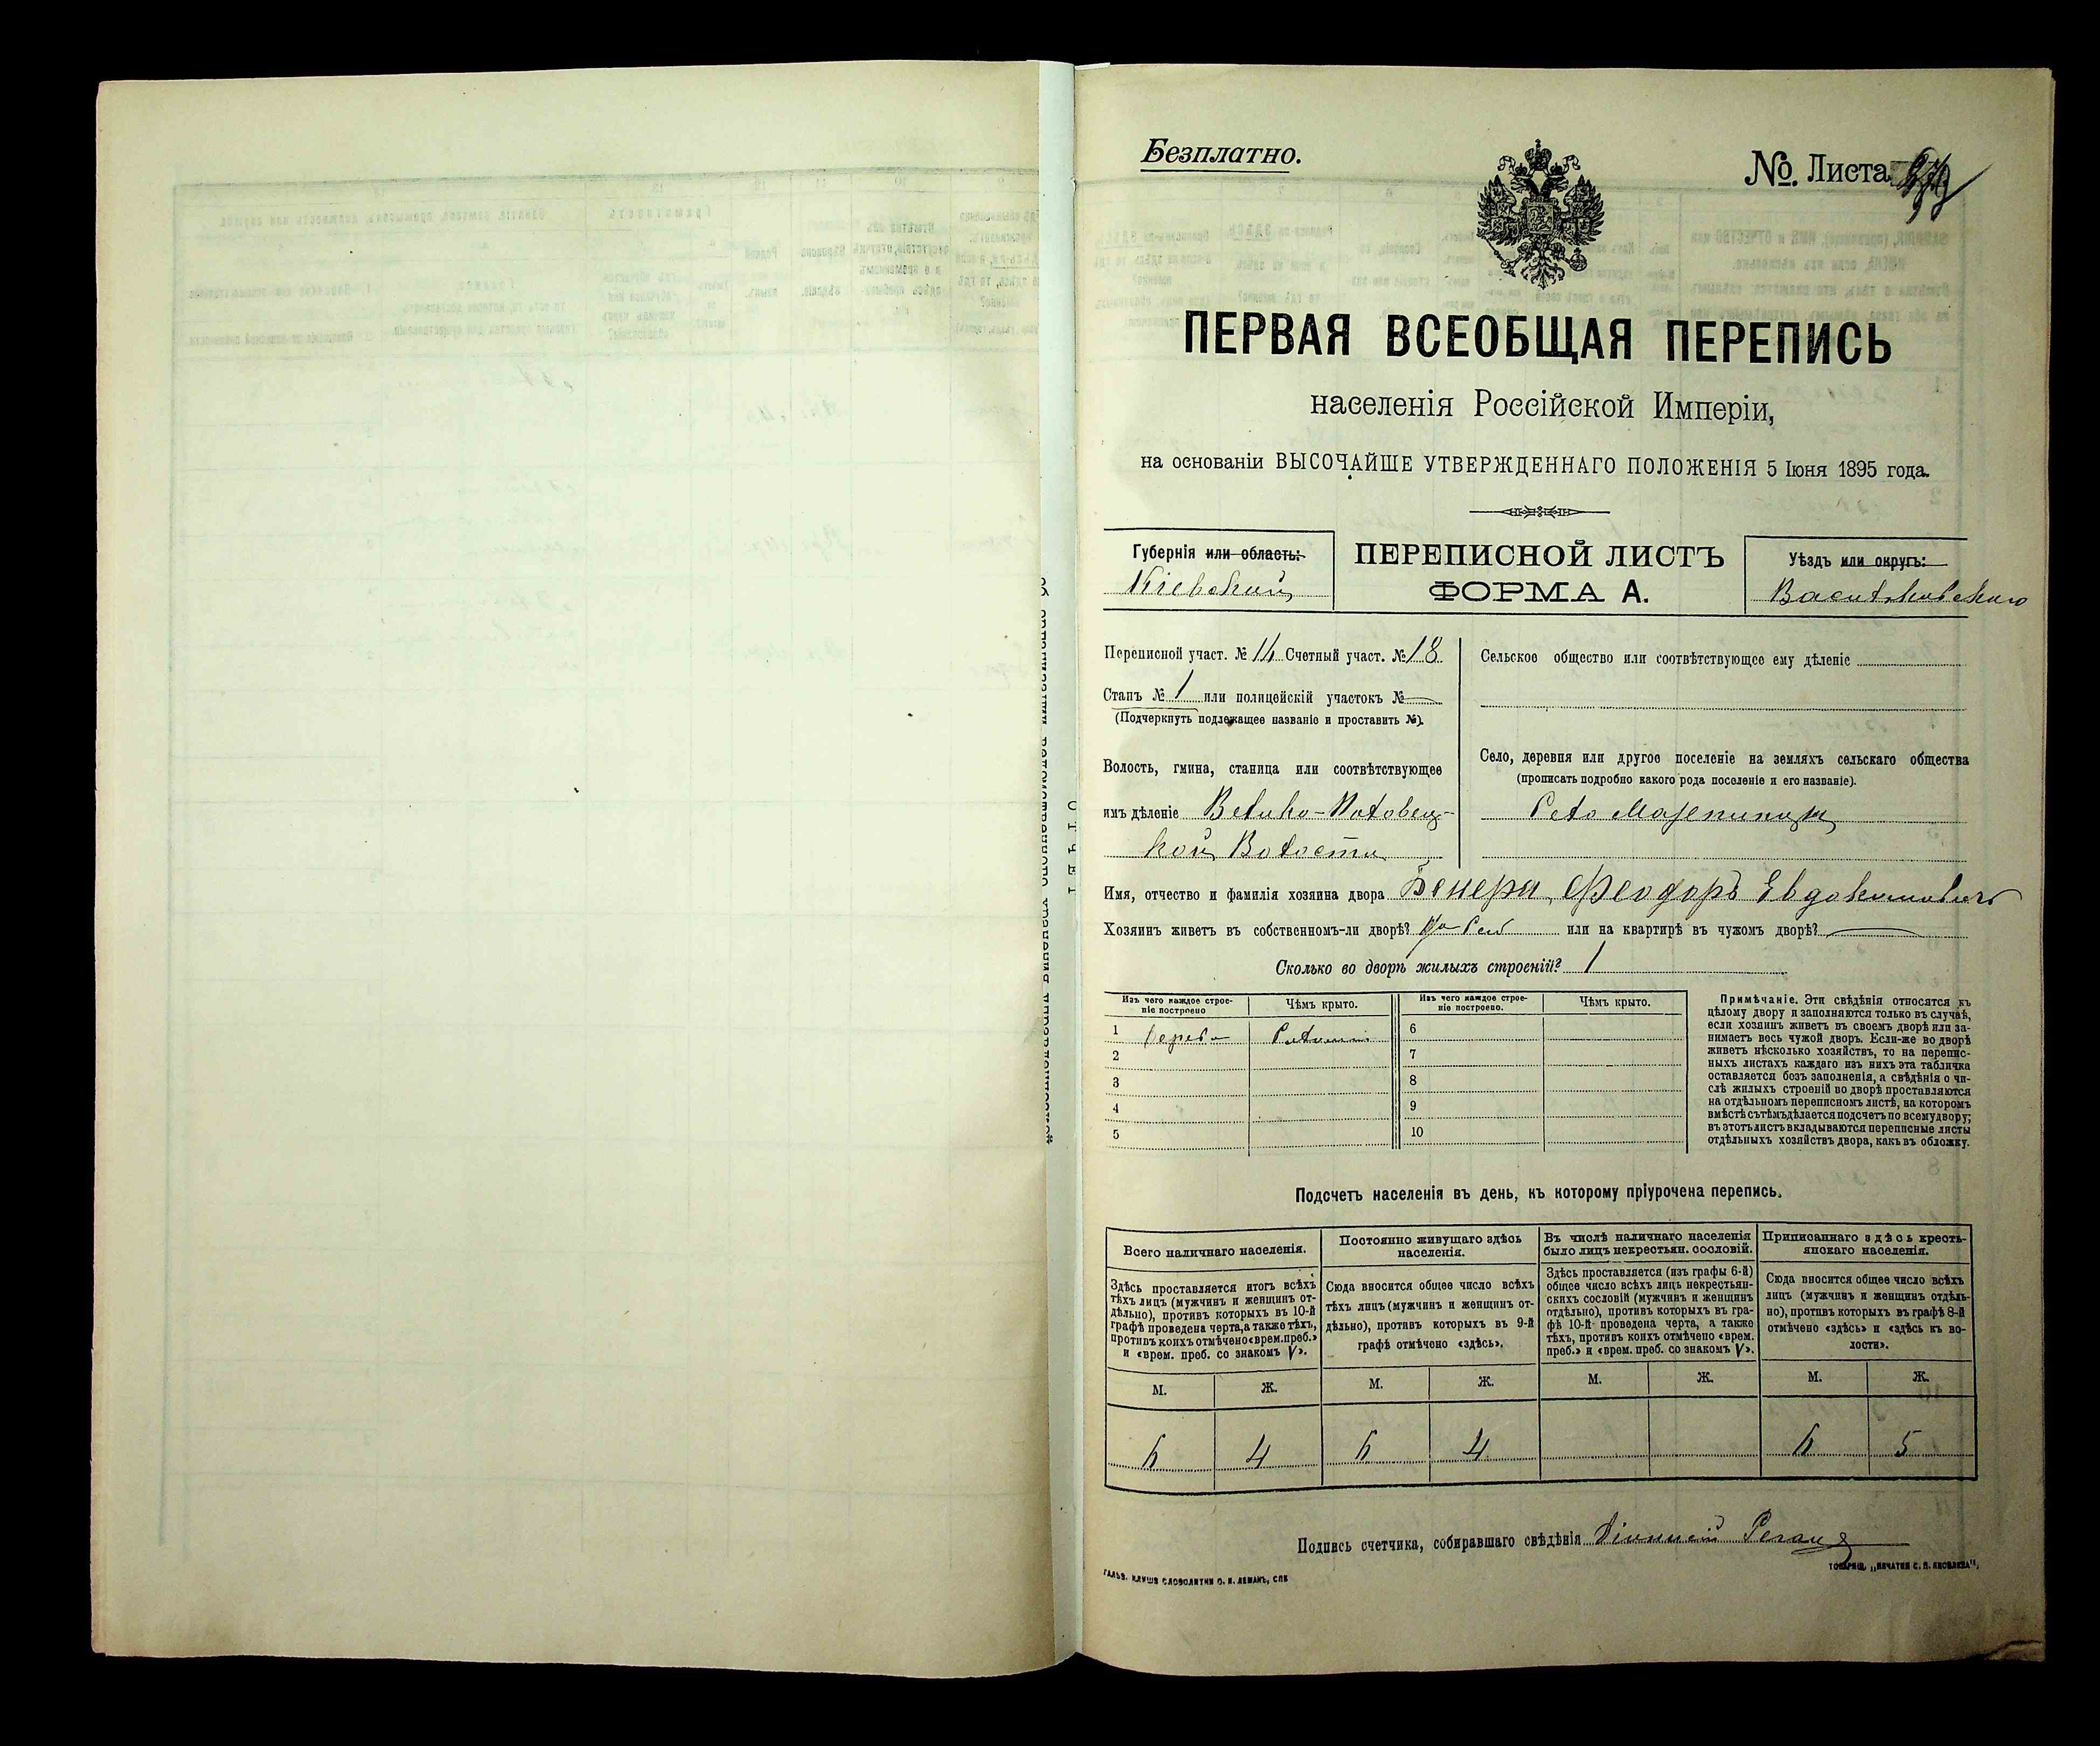 Безплатно.
№. Листа
ПЕРВАЯ ВСЕОБЩАЯ ПЕРЕПИСЬ
населенія Россійской Имперіи,
на основаніи ВЫСОЧАЙШЕ УТВЕРЖДЕННАГО ПОЛОЖЕНІЯ 5 Іюня 1895 года.
Губернія или область:
Кіевской
ПЕРЕПИСНОЙ ЛИСТЪ
ФОРМА А.
Уѣздъ или округъ:
Васильковскаго
Переписной участ. № 14 Счетный участ. № 18
Станъ № 1 или полицейскій участокъ №
(Подчеркнуть подлежащее названіе и проставить №).
Волость, гмина, станица или соотвѣтствующее
имъ дѣленіе Велико-Половец-
кой Волости
Сельское общество или соотвѣтствующее ему дѣленіе
Село, деревня или другое поселеніе на земляхъ сельскаго общества
(прописать подробно какого рода поселеніе и его названіе).
Село Мазепинцы
Имя, отчество и фамилія хозяина двора Венера Феодоръ Евдокимовичъ
Хозяинъ живетъ въ собственномъ-ли дворѣ? или на квартирѣ въ чужомъ дворѣ?
Сколько во дворѣ жилыхъ строеній? 1
Изъ чего каждое строе-
ніе построено
Чѣмъ крыто.
Изъ чего каждое строе-
ніе построено.
Чѣмъ крыто.
1 дерева Соломою 6
2 7
3 8
4 9
5 10
Примѣчаніе. Эти свѣдѣнія относятся къ
цѣлому двору и заполняются только въ случаѣ,
если хозяинъ живетъ въ своемъ дворѣ или за-
нимаетъ весь чужой дворъ. Если-же во дворѣ
живетъ нѣсколько хозяйствъ, то на перепис-
ныхъ листахъ каждаго изъ нихъ эта табличка
оставляется безъ заполненія, а свѣдѣнія о чи-
слѣ жилыхъ строеній во дворѣ проставляются
на отдѣльномъ переписномъ листѣ, на которомъ
вмѣстѣ съ тѣмъ дѣлается подсчетъ по всему двору;
въ этотъ листъ вкладываются переписные листы
отдѣльныхъ хозяйствъ двора, какъ въ обложку.
Подсчетъ населенія въ день, къ которому пріурочена перепись.
Всего наличнаго населенія.
Постоянно живущаго здѣсь
населенія.
Въ числѣ наличнаго населенія
было лицъ некрестьян. сословій.
Приписаннаго здѣсь кресть-
янскаго населенія.
Здѣсь проставляется итогъ всѣхъ
тѣхъ лицъ (мужчинъ и женщинъ от-
дѣльно), противъ которыхъ въ 10-й
графѣ проведена черта, а также тѣхъ,
противъ коихъ отмѣчено «врем. преб.»
и «врем. преб. со знакомъ V».
Сюда вносится общее число всѣхъ
тѣхъ лицъ (мужчинъ и женщинъ от-
дѣльно), противъ которыхъ въ 9-й
графѣ отмѣчено «здѣсь».
Здѣсь проставляется (изъ графы 6-й)
общее число всѣхъ лицъ некрестьян-
скихъ сословій (мужчинъ и женщинъ
отдѣльно), противъ которыхъ въ гра-
фѣ 10-й проведена черта, а также
тѣхъ, противъ коихъ отмѣчено «врем.
преб.» и «врем. преб. со знакомъ V».
Сюда вносится общее число всѣхъ
лицъ (мужчинъ и женщинъ отдѣль-
но), противъ которыхъ въ графѣ 8-й
отмѣчено «здѣсь» и «здѣсь къ во-
лости».
М. Ж. М. Ж. М. Ж. М. Ж.
6 4 6 4 6 5
Подпись счетчика, собиравшаго свѣдѣнія
ГАЛЬВ. КЛИШЕ СЛОВОЛИТНИ О. И. ЛЕМАНЪ, СПБ
ТОВАРИЩ. „ПЕЧАТНЯ С. П. ЯКОВЛЕВА",